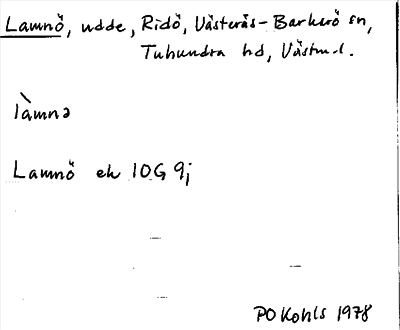 Lamnö, udde, Ridö, Västerås-Barkarö sn,
Tuhundra hd, Västml.
làmnə
Lamnö ek 10G 9j
PO Kohls 1978